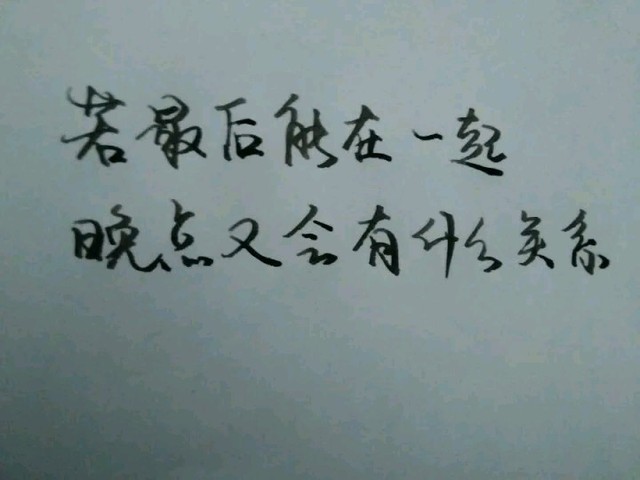 若最后能在一起
晚点又会有什么关系